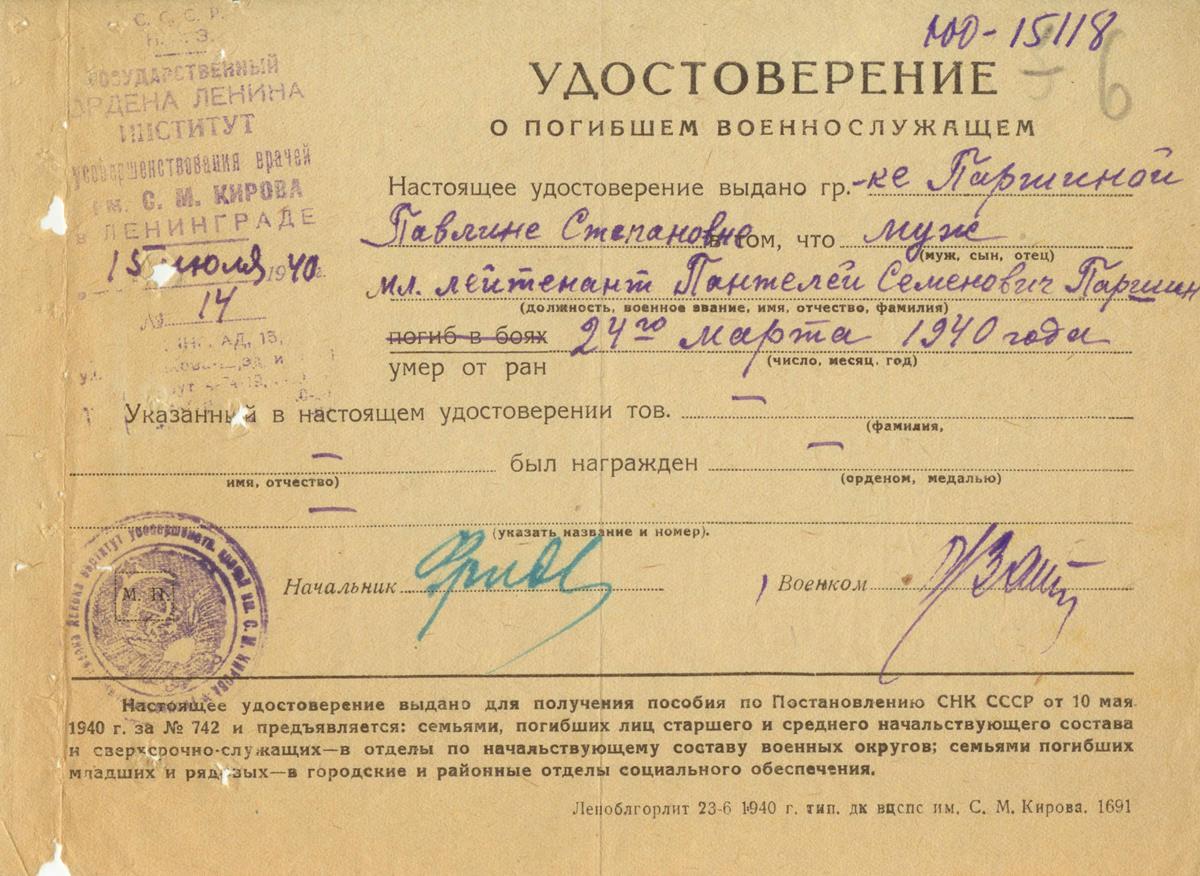 С. С. С. Р.
Н. К. З.
ГОСУДАРСТВЕННЫЙ
ОРДЕНА ЛЕНИНА
ИНСТИТУТ
усовершенствования врачей
им. С. М. КИРОВА
в ЛЕНИНГРАДЕ
15 июля 1940 г.
№ 14
6
УДОСТОВЕРЕНИЕ
О ПОГИБШЕМ ВОЕННОСЛУЖАЩЕМ
Настоящее удостоверение выдано гр.-ке Паршиной
Павлине Степановне в том, что муж
(муж, сын, отец)
мл. лейтенант Пантелей Семенович Паршин
(должность, военное звание, имя, отчество, фамилия)
погиб в боях 24го марта 1940 года
(число, месяц, год)
умер от ран
Указанный в настоящем удостоверении тов. —
(фамилия,
— был награжден —
имя, отчество) (орденом, медалью)
—
(указать название и номер).
М. П.
Начальник Военком
Настоящее удостоверение выдано для получения пособия по Постановлению СНК СССР от 10 мая
1940 г. за № 742 и предъявляется: семьями, погибших лиц старшего и среднего начальствующего состава
и сверхсрочно-служащих—в отделы по начальствующему составу военных округов; семьями погибших
младших и рядовых—в городские и районные отделы социального обеспечения.
Леноблгорлит 23-6 1940 г. тип. дк вцспс им. С. М. Кирова. 1691